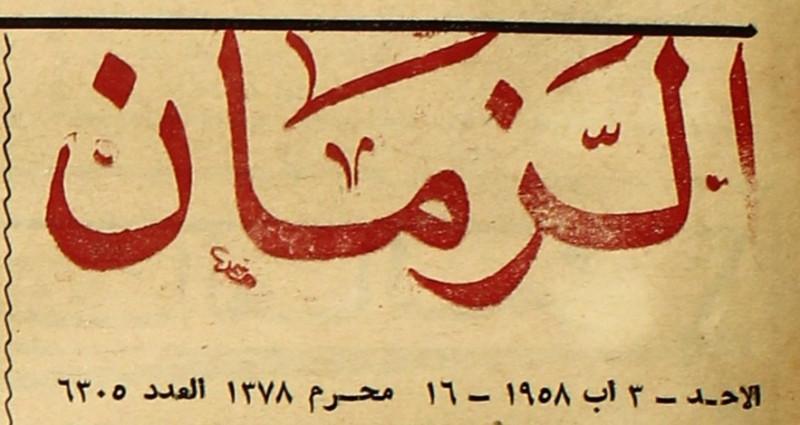 الزمان
الاحد - ٣ اب ١٩٥٨ - ١٦ محرم ١٣٧٨ العدد ٦٣٠٥